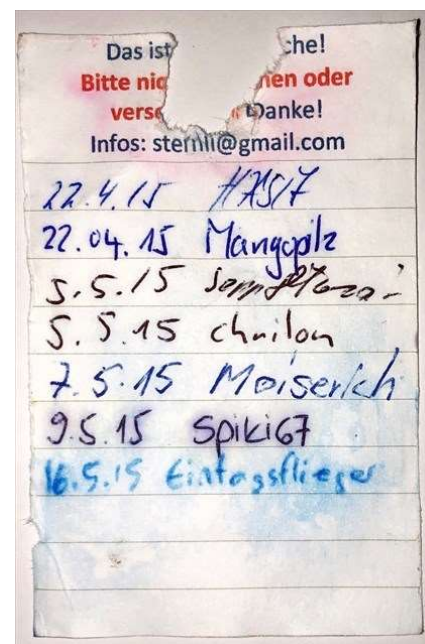 Das ist che!
Bitte nic en oder
vers Danke!
Infos: sternli@gmail.com
22.4.15
22.04.15 Mangopilz
5.5.15
5.5.15 chnilon
7.5.15 Moiserich
9.5.15 Spiki67
16.5.15 Eintagsflieger